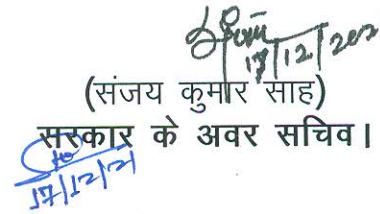 17/12/202
(संजय कुमार साह)
सरकार के अवर सचिव।
17/12/21